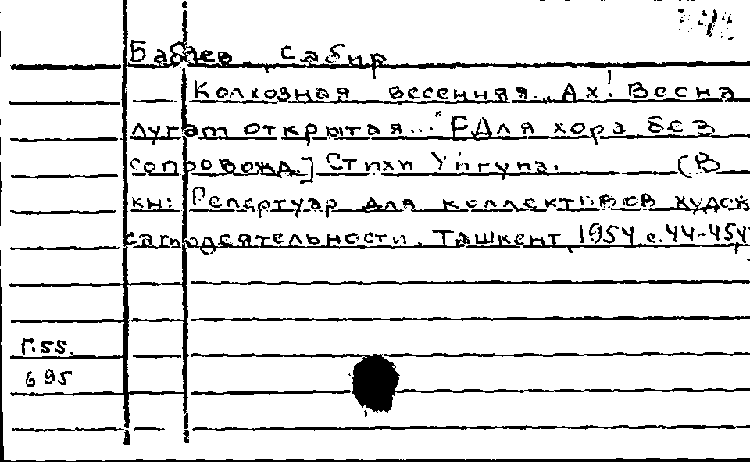 Бабаев Сабир
Колхозная весенняя. „Ах! Весна
лугам открытая..." [Для хора без
сопровожд.] Стихи Уйгуна. (В
кн: Репертуар для коллективов худож
самодеятельности. Ташкент, 1954 с. 44-45)
П.55.
695